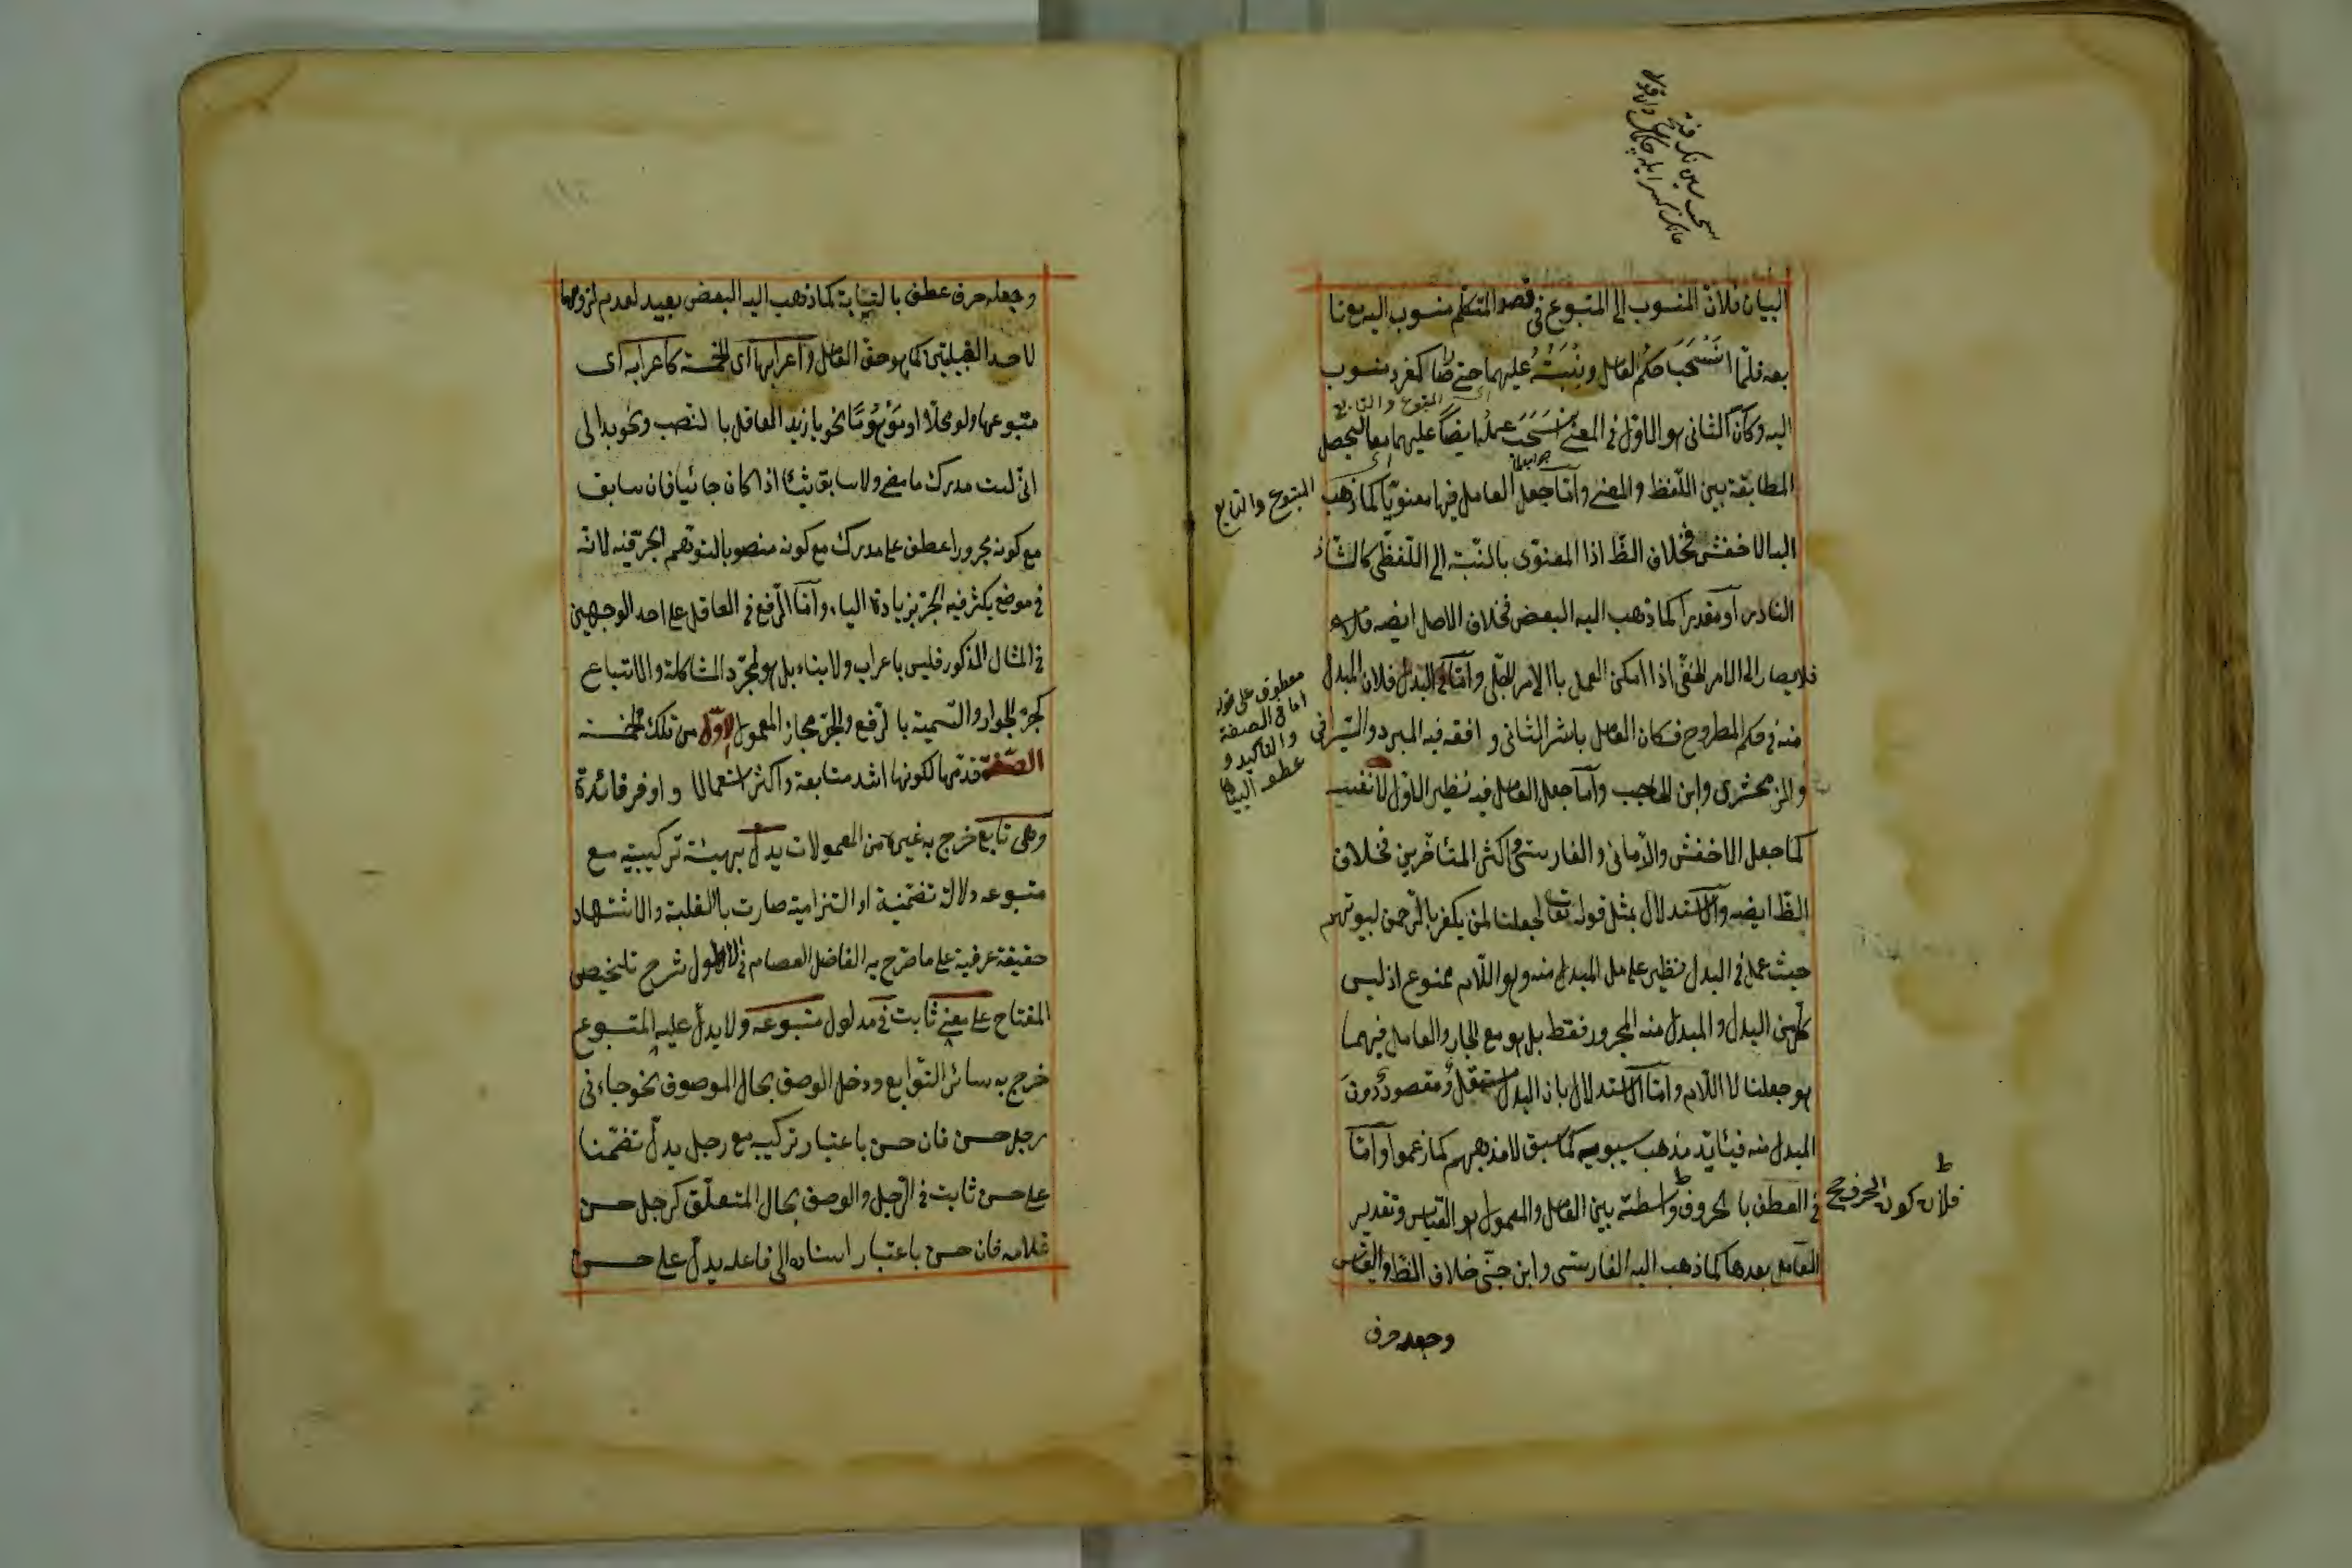 البيان فلان المنسوب الى المتبوع في قصد المتكلم منسوب اليه مع تا
بعه فلما انسحب حكم العامل ونسبته عليهما حتى صارا كمفرد منسوب
المتبوع والتابع
اليه وكان الثاني هو الاول في المعنى انسحب عمله ايضا عليهما معا ليحصل
المطابقة بين اللفظ والمعنى وامّا جعل العامل فيها معنويا كما ذهب
المتبوع والتابع
اليه الاخفش فخلاف الظ اذا المعنوى بالنسبة الى اللفظى كالشاذ
النادر او مقدرا كما ذهب اليه البعض فخلاف الاصل ايضه
فلا يصار الى الامر الخفى اذا امكن العمل بالامر الجلى وامّا في البدل فلان المبدل
معطوف على قوله
اما في الصفة
والتاكيد و
عطف البيان
منه في حكم المطروح فكان العامل باشر الثانى و افقه فيه المبرد والسيرافى
والزمخشرى وابن الحاجب وامّا جعل العامل فيه نظير الاول لا نفسه
كما جعل الاخفش والرمانى والفارسى واكثر المتأخرين فخلاف
الظ ايضه والاستدلال بمثل قوله تعا لجعلنا لمن يكفر بالرحمن لبيوتهم
حيث عمل في البدل نظير عامل المبدل منه وهو اللام ممنوع اذ ليس
كل من البدل والمبدل منه المجرور فقط بل هو مع الجار والعامل فيهما
هو جعلنا لا اللام وامّا الاستدلال بان البدل مستقل ومقصود دون
المبدل منه فيئايّد مذهب سيبويه كما سبق لا مذهبهم كما زعموا وامّا
في العطف بالحروف واسطة بين العامل والمعمول هو القياس وتقدير
فلان كون الحرف
العامل بعدها كما ذهب اليه الفارسى وابن جنّى خلاف الظ والقياس
وجعله حرف
وجعله حرف عطف بالنيابة كما ذهب اليه البعض بعيد لعدم لزومها
لاحد القبيلتين كما هو حق العامل واعرابها اى الخمسة كاعرابه اى
متبوعها ولو محلا او متوهما نحو يا زيد العاقل بالنصب ونحو بدا لى
انى لست مدرك ما مضى ولا سابق شيئا اذا كان جائيا فان سابق
مع كونه مجرورا عطف على مدرك مع كونه منصوبا لتوهم الجر فيه لانه
في موضع يكثر فيه الجر بزيادة الباء وامّا الرفع في العاقل على احد الوجهين
في المثال المذكور فليس باعراب ولا بناء بل هو لمجرّد المشاكلة والاتباع
كجرّ الجوار والتسمية بالرفع والجرّ مجاز المعمول الاوّل من تلك الخمسة
الصفة قدّمها لكونها اشد متابعة واكثر استعمالا و اوفر فائدة
وهى تابع خرج به غيره من المعمولات يدلّ بهيئة تركيبية مع
متبوعه دلالة تضمنية او التزامية صارت بالغلبة والاشتهاد
حقيقة عرفية على ما صرح به الفاضل العصام في الاطول شرح تلخيص
المفتاح على معنى ثابت في مدلول متبوعه ولا يدلّ عليه المتبوع
خرج به سائر التوابع ودخل الوصف بحال الموصوف نحو جاءنى
رجل حسن فان حسن باعتبار تركيبه مع رجل يدلّ تضمّنا
على حسن ثابت في الرجل والوصف بحال المتعلّق كرجل حسن
غلامه فان حسن باعتبار اسناده الى فاعله يدلّ على حسن